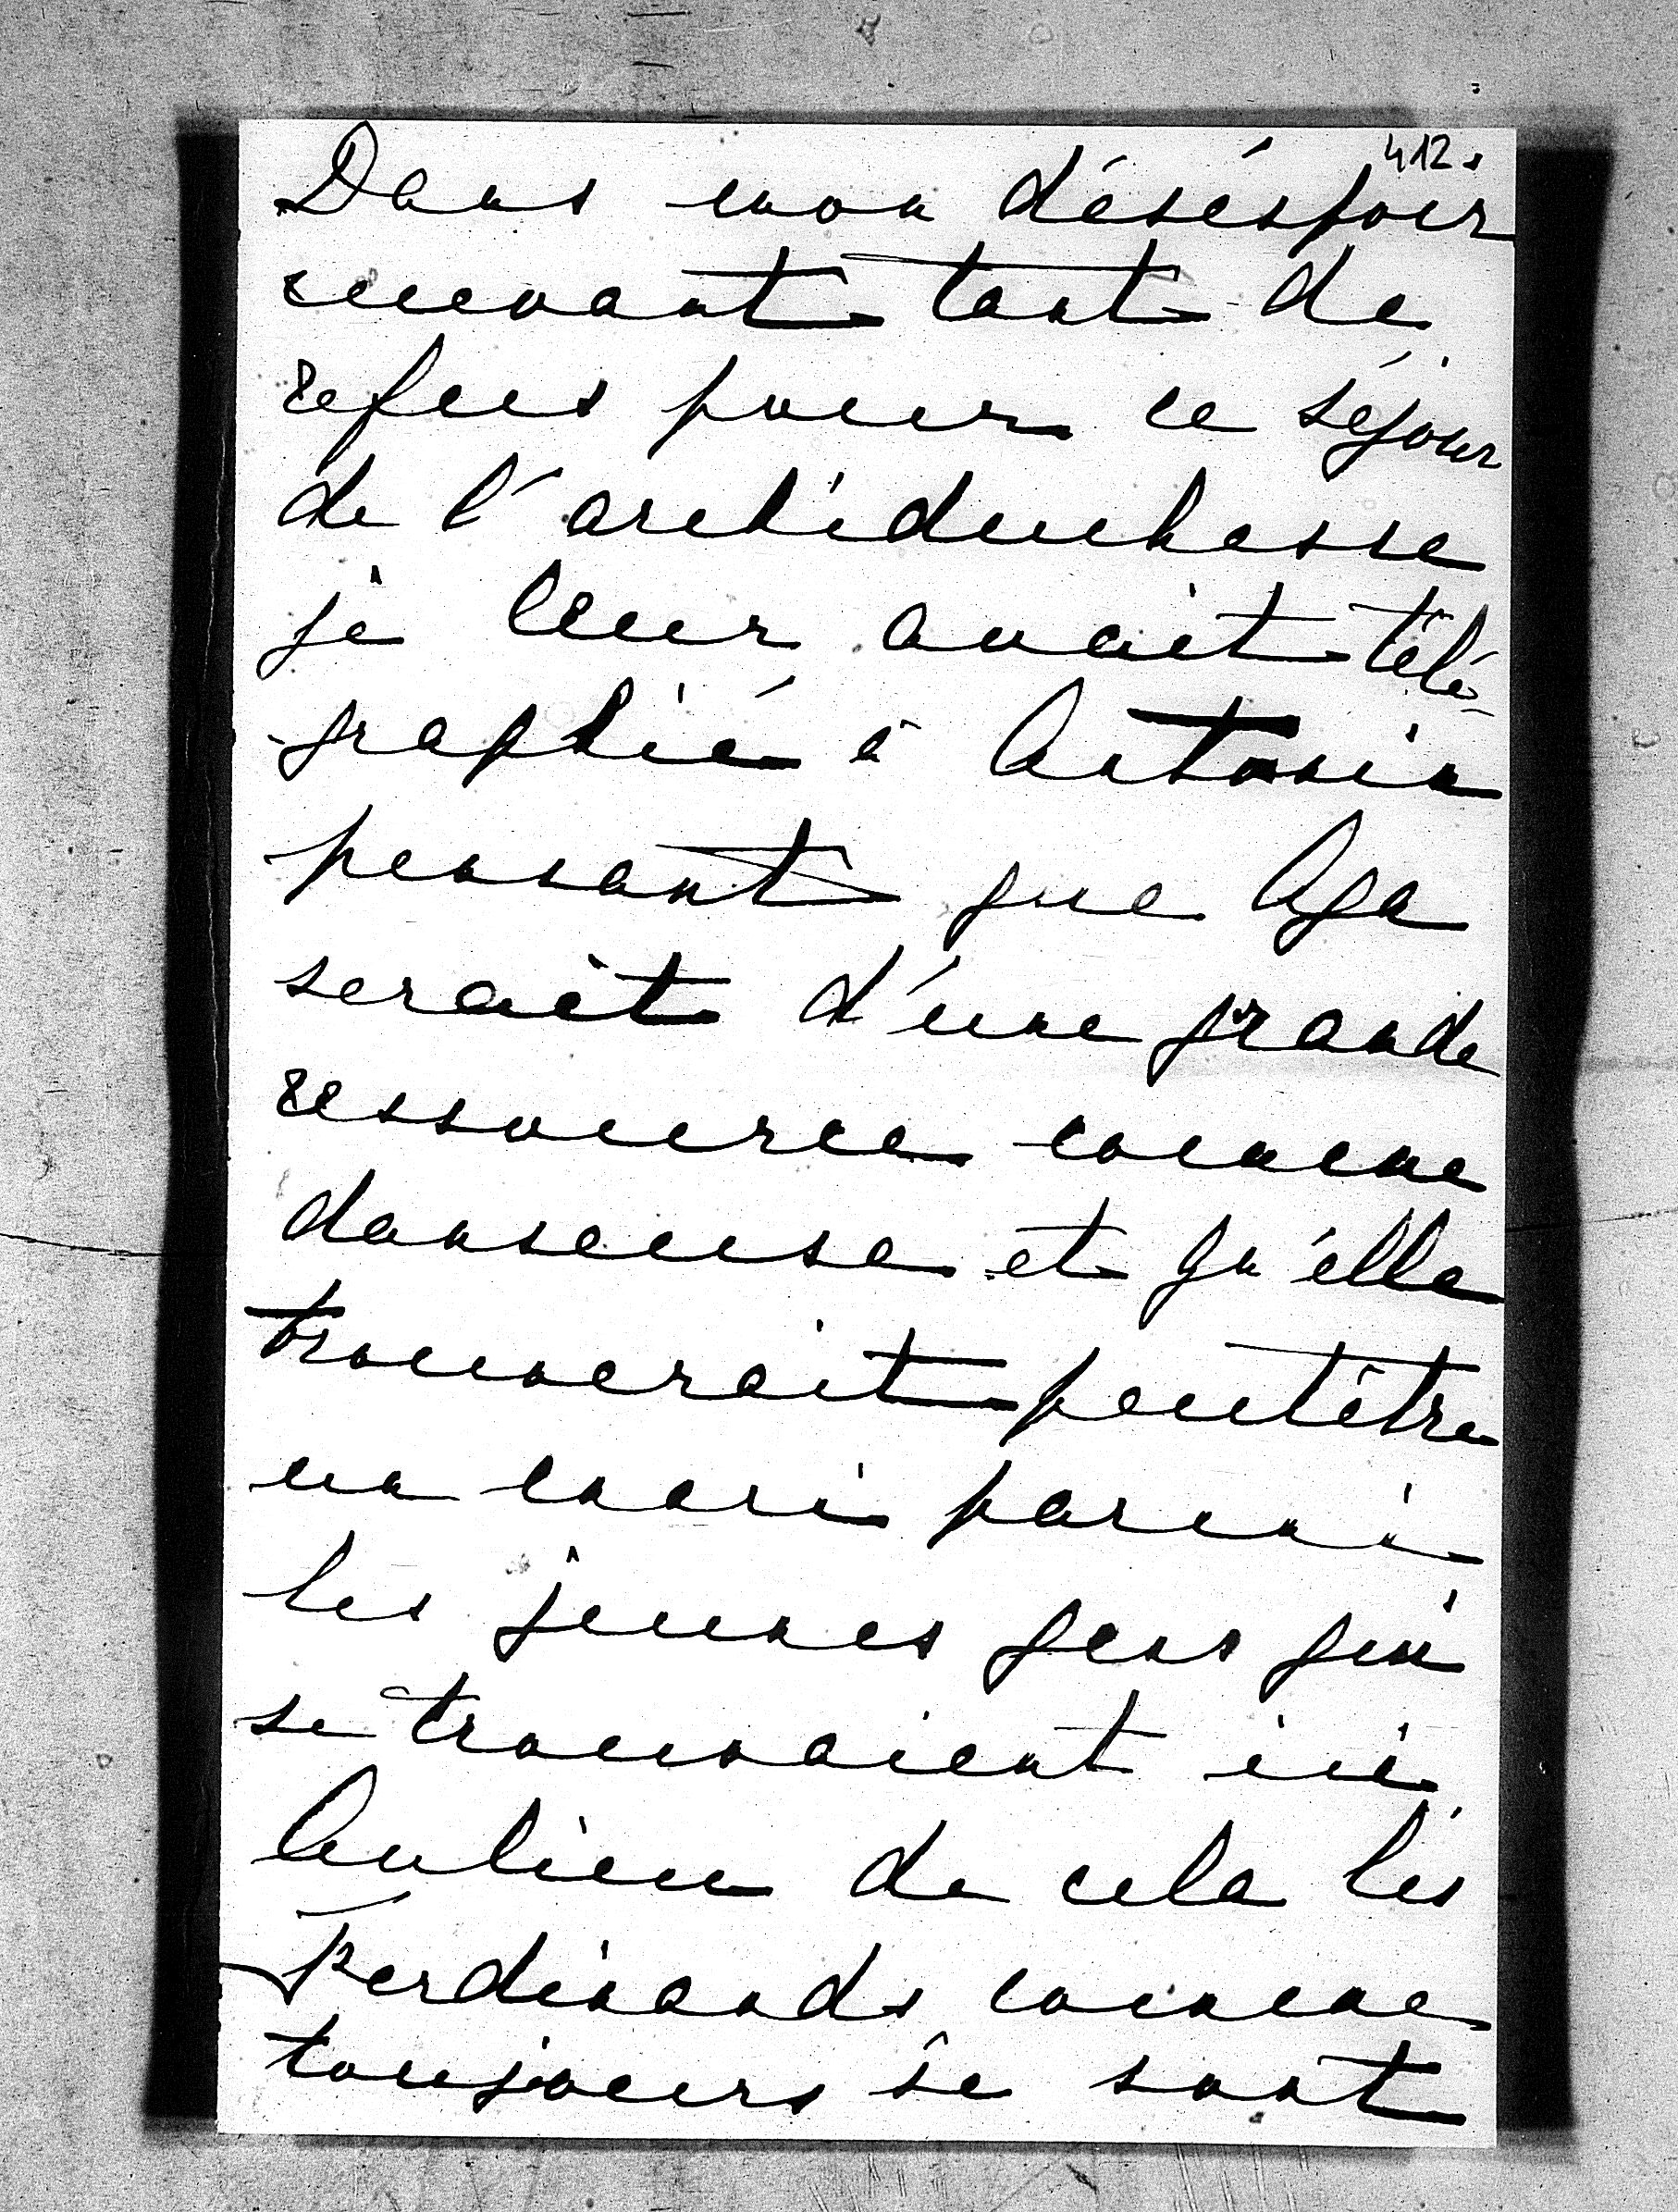 412.
Dans mon déséspoir
recevant tant de
refus pour ce séjour
de l'archiduchesse
je leur avait télé-
graphié à Antonin
pensant que Aga
serait d'une grande
ressource comme
danseuse et qu'elle
trouverait peutêtre
un mari parmi
les jeunes gens qui
se trouvaient ici
Aulieu de cela les
Ferdinands comme
toujours se sont